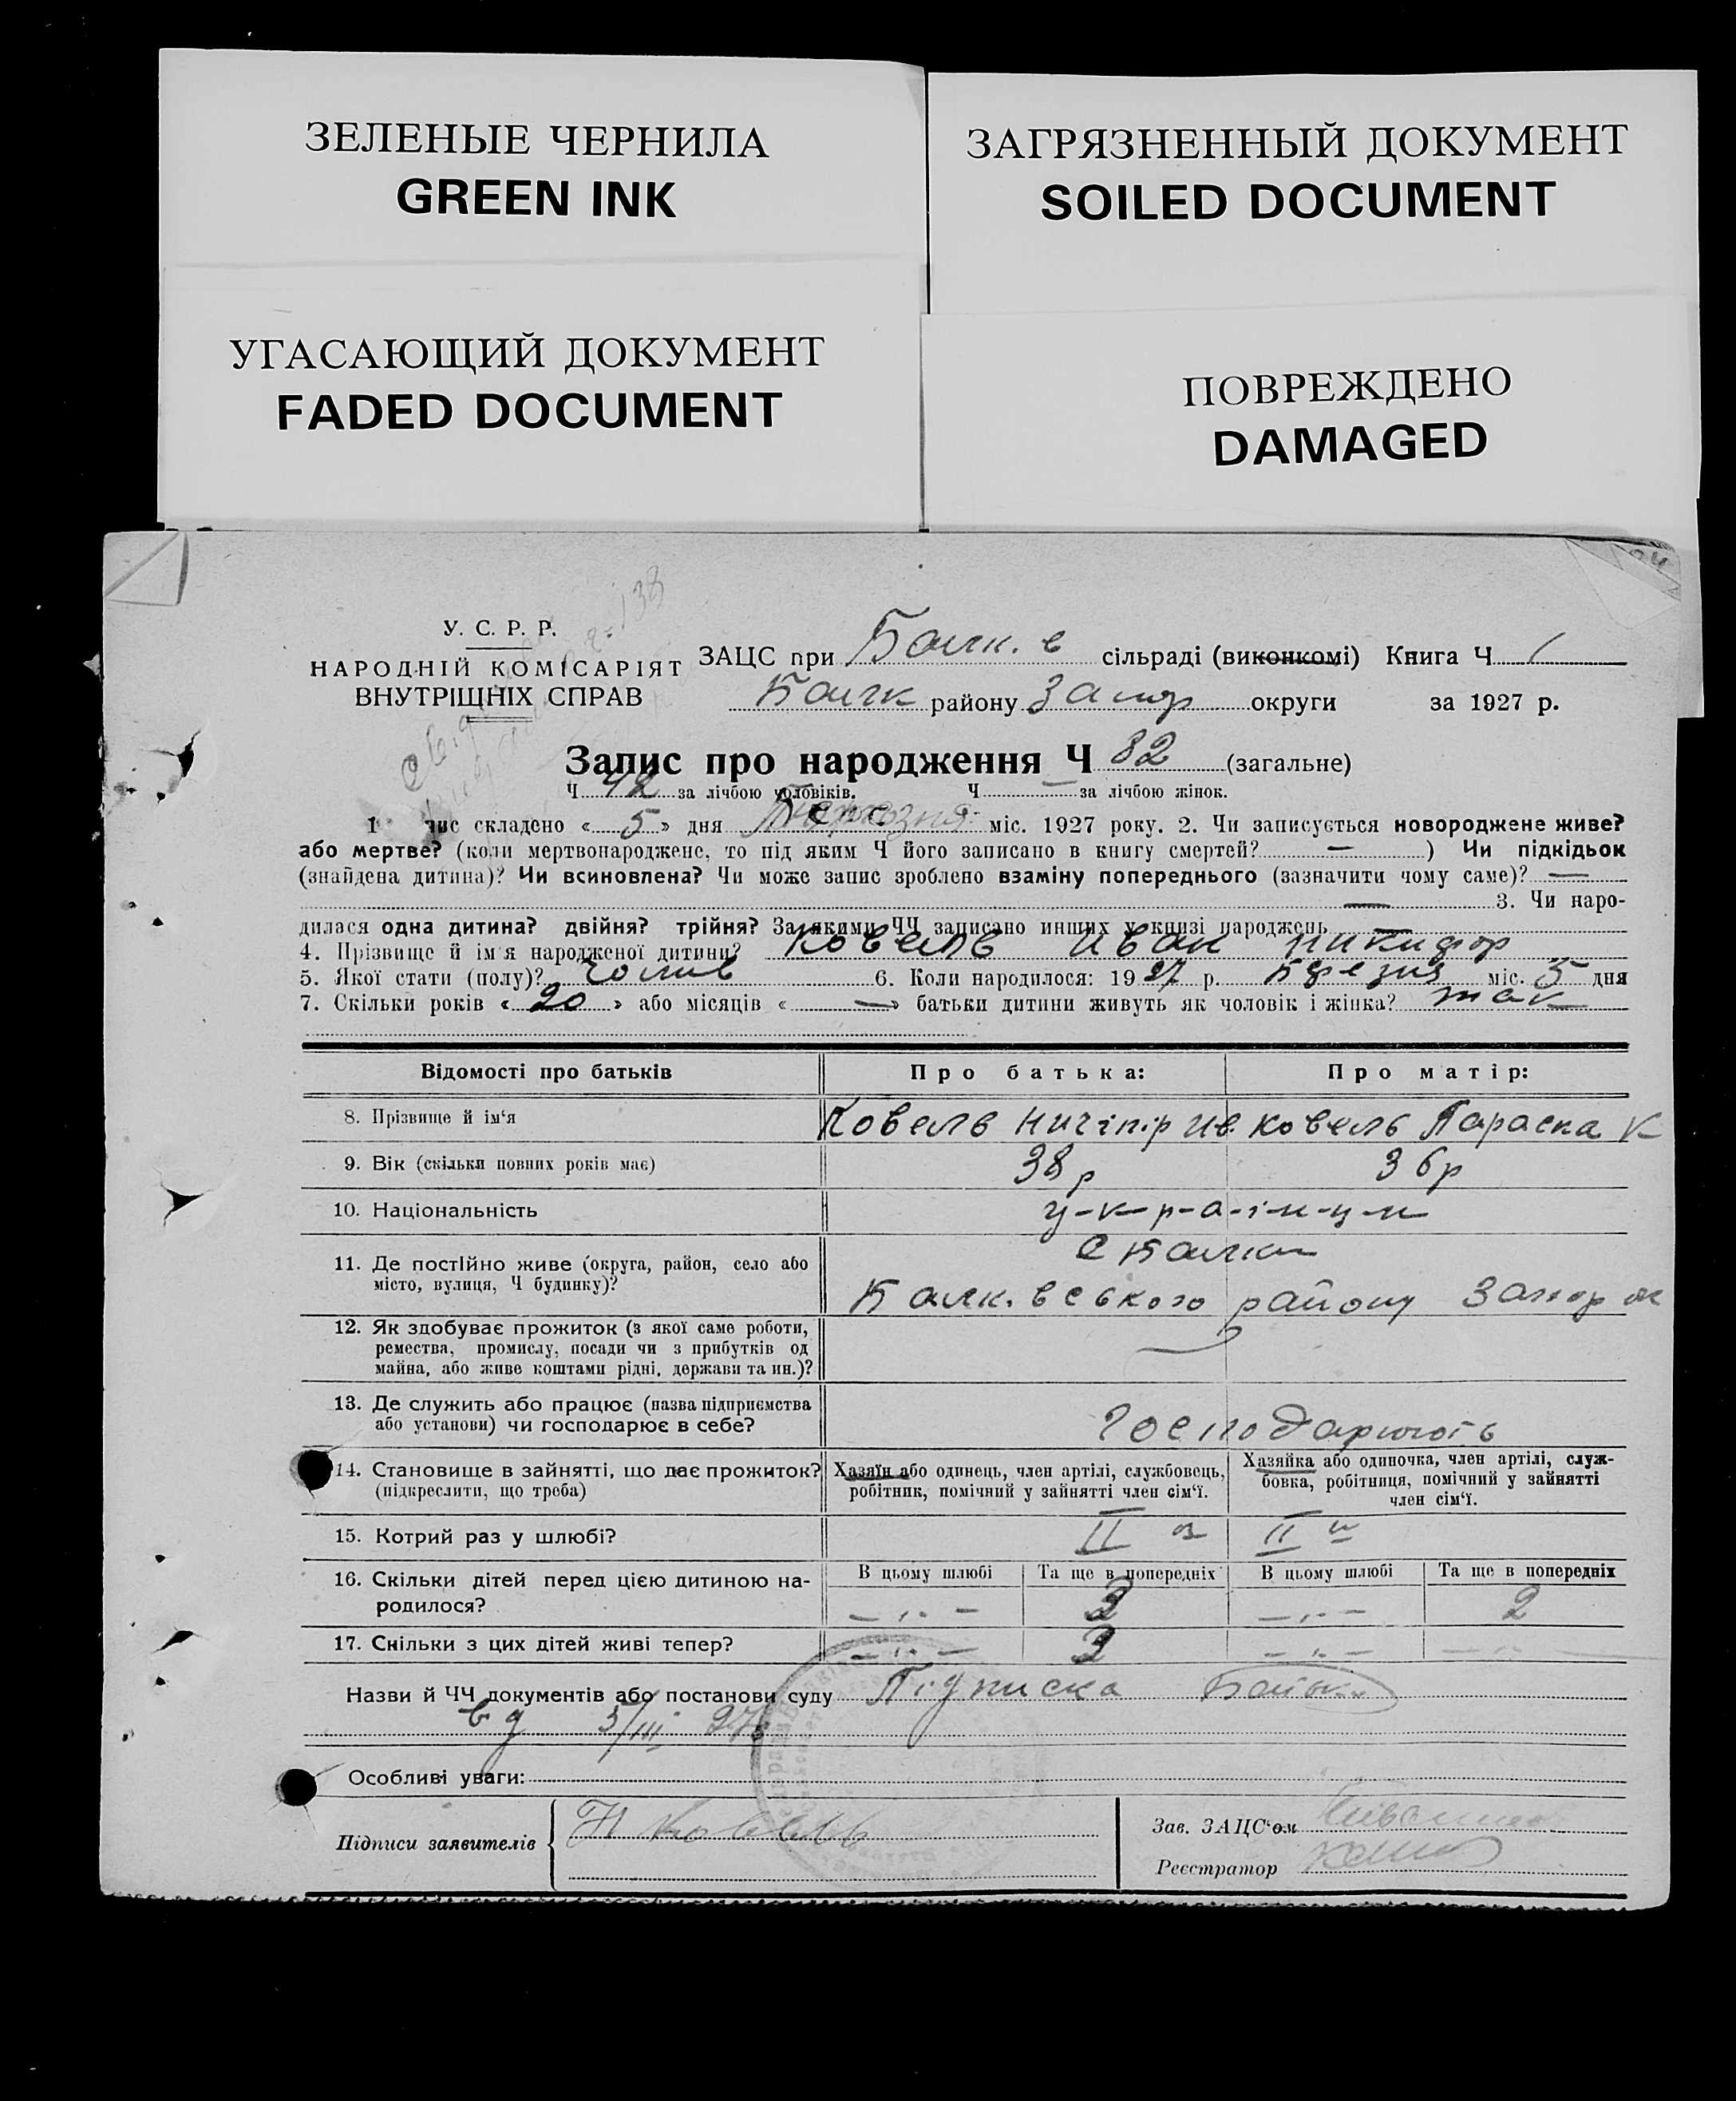 ЗЕЛЕНЫЕ ЧЕРНИЛА
GREEN INK
ЗАГРЯЗНЕННЫЙ ДОКУМЕНТ
SOILED DOCUMENT
УГАСАЮЩИЙ ДОКУМЕНТ
FADED DOCUMENT
ПОВРЕЖДЕНО
DAMAGED
У. С. Р. Р.
НАРОДНІЙ КОМІСАРІЯТ
ВНУТРІШНІХ СПРАВ
138
ЗАЦС при Балк. в сільраді (виконкомі) Книга Ч 1
Балк району Запор округи за 1927 р.
Запис про народження Ч 82 (загальне)
Ч 42 за лічбою чоловіків. Ч — за лічбою жінок.
1 пис складено « 5 » дня Березня міс. 1927 року. 2. Чи записується новороджене живе?
або мертве? (коли мертвонароджене, то під яким Ч його записано в книгу смертей? — ) Чи підкідьок
(знайдена дитина)? Чи всиновлена? Чи може запис зроблено взаміну попереднього (зазначити чому саме)? —
— 3. Чи наро-
дилася одна дитина? двійня? трійня? За якими ЧЧ записано инших у книзі народжень —
4. Прізвище й ім'я народженої дитини? Ковель Иван Никифор
5. Якої стати (полу)? чолив 6. Коли народилося: 1927 р. Березня міс. 5 дня
7. Скільки років « 20 » або місяців « — » батьки дитини живуть як чоловік і жінка? так
Відомості про батьків Про батька: Про матір:
8. Прізвище й ім'я Ковель Ничіпір Ив. Ковель Параска К
9. Вік (скільки повних років має) 38 р 36 р
10. Національність у-к-р-а-ї-н-ц-и
11. Де постійно живе (округа, район, село або
місто, вулиця, Ч будинку)?
с Балки
Балк. вського району Запор ок
12. Як здобуває прожиток (з якої саме роботи,
ремества, промислу, посади чи з прибутків од
майна, або живе коштами рідні, держави та ин.)?
13. Де служить або працює (назва підприємства
або установи) чи господарює в себе?
Господарюють
14. Становище в зайнятті, що дає прожиток?
(підкреслити, що треба)
Хазяїн або одинець, член артілі, службовець,
робітник, помічний у зайнятті член сім'ї.
Хазяйка або одиночка, член артілі, служ-
бовка, робітниця, помічний у зайнятті
член сім'ї.
15. Котрий раз у шлюбі? II й II й
16. Скільки дітей перед цією дитиною на-
родилося?
В цьому шлюбі Та ще в попередніх В цьому шлюбі Та ще в попередніх
— „ — 3 — „ — 2
17. Скільки з цих дітей живі тепер? — „ — 3 — „ —
Назви й ЧЧ документів або постанови суду Підписка Батька
вд 5/III 27
Особливі уваги:
Підписи заявителів Н Ковель
Зав. ЗАЦС'ом
Реєстратор